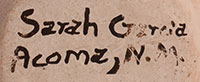 Sarah Garcia
Acoma, N.M.